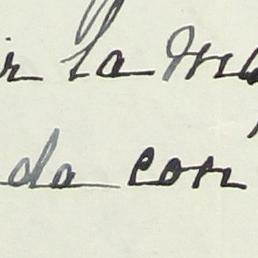 ir la
da con